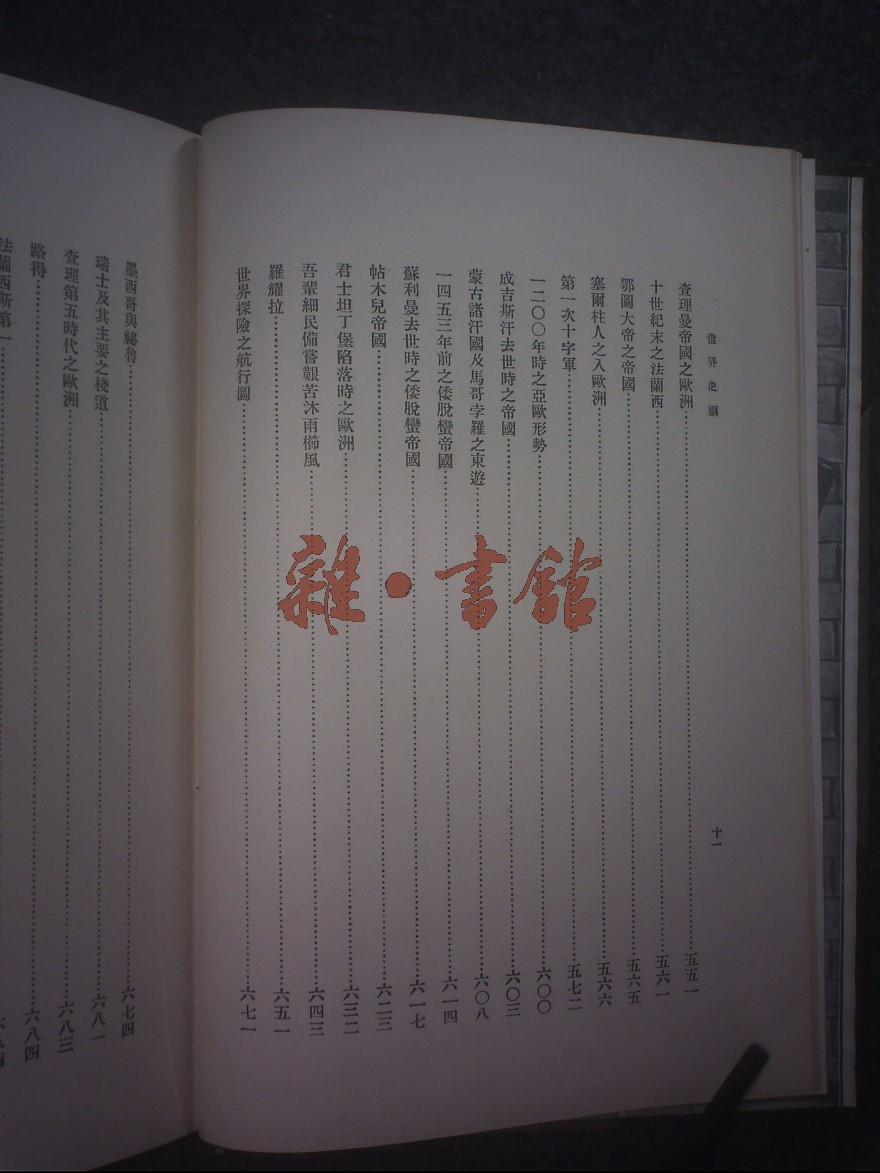 世界史綱
十一
查理曼帝國之歐洲……五五一
十世紀末之法蘭西……五六一
鄂圖大帝之帝國……五六五
塞爾柱人之入歐洲……五六六
第一次十字軍……五七二
一二〇〇年時之亞歐形勢……六〇〇
成吉斯汗去世時之帝國……六〇三
蒙古諸汗國及馬哥孛羅之東遊……六〇八
一四五三年前之倭脫蠻帝國……六一四
蘇利曼去世時之倭脫蠻帝國……六一七
帖木兒帝國……六二三
君士坦丁堡陷落時之歐洲……六三二
吾輩細民備嘗艱苦沐雨櫛風……六四三
羅耀拉……六五一
世界探險之航行圖……六七一
墨西哥與祕魯……六七四
瑞士及其主要之棧道……六八一
查理第五時代之歐洲……六八三
路得……六八四
法蘭西斯第一
雜·書館